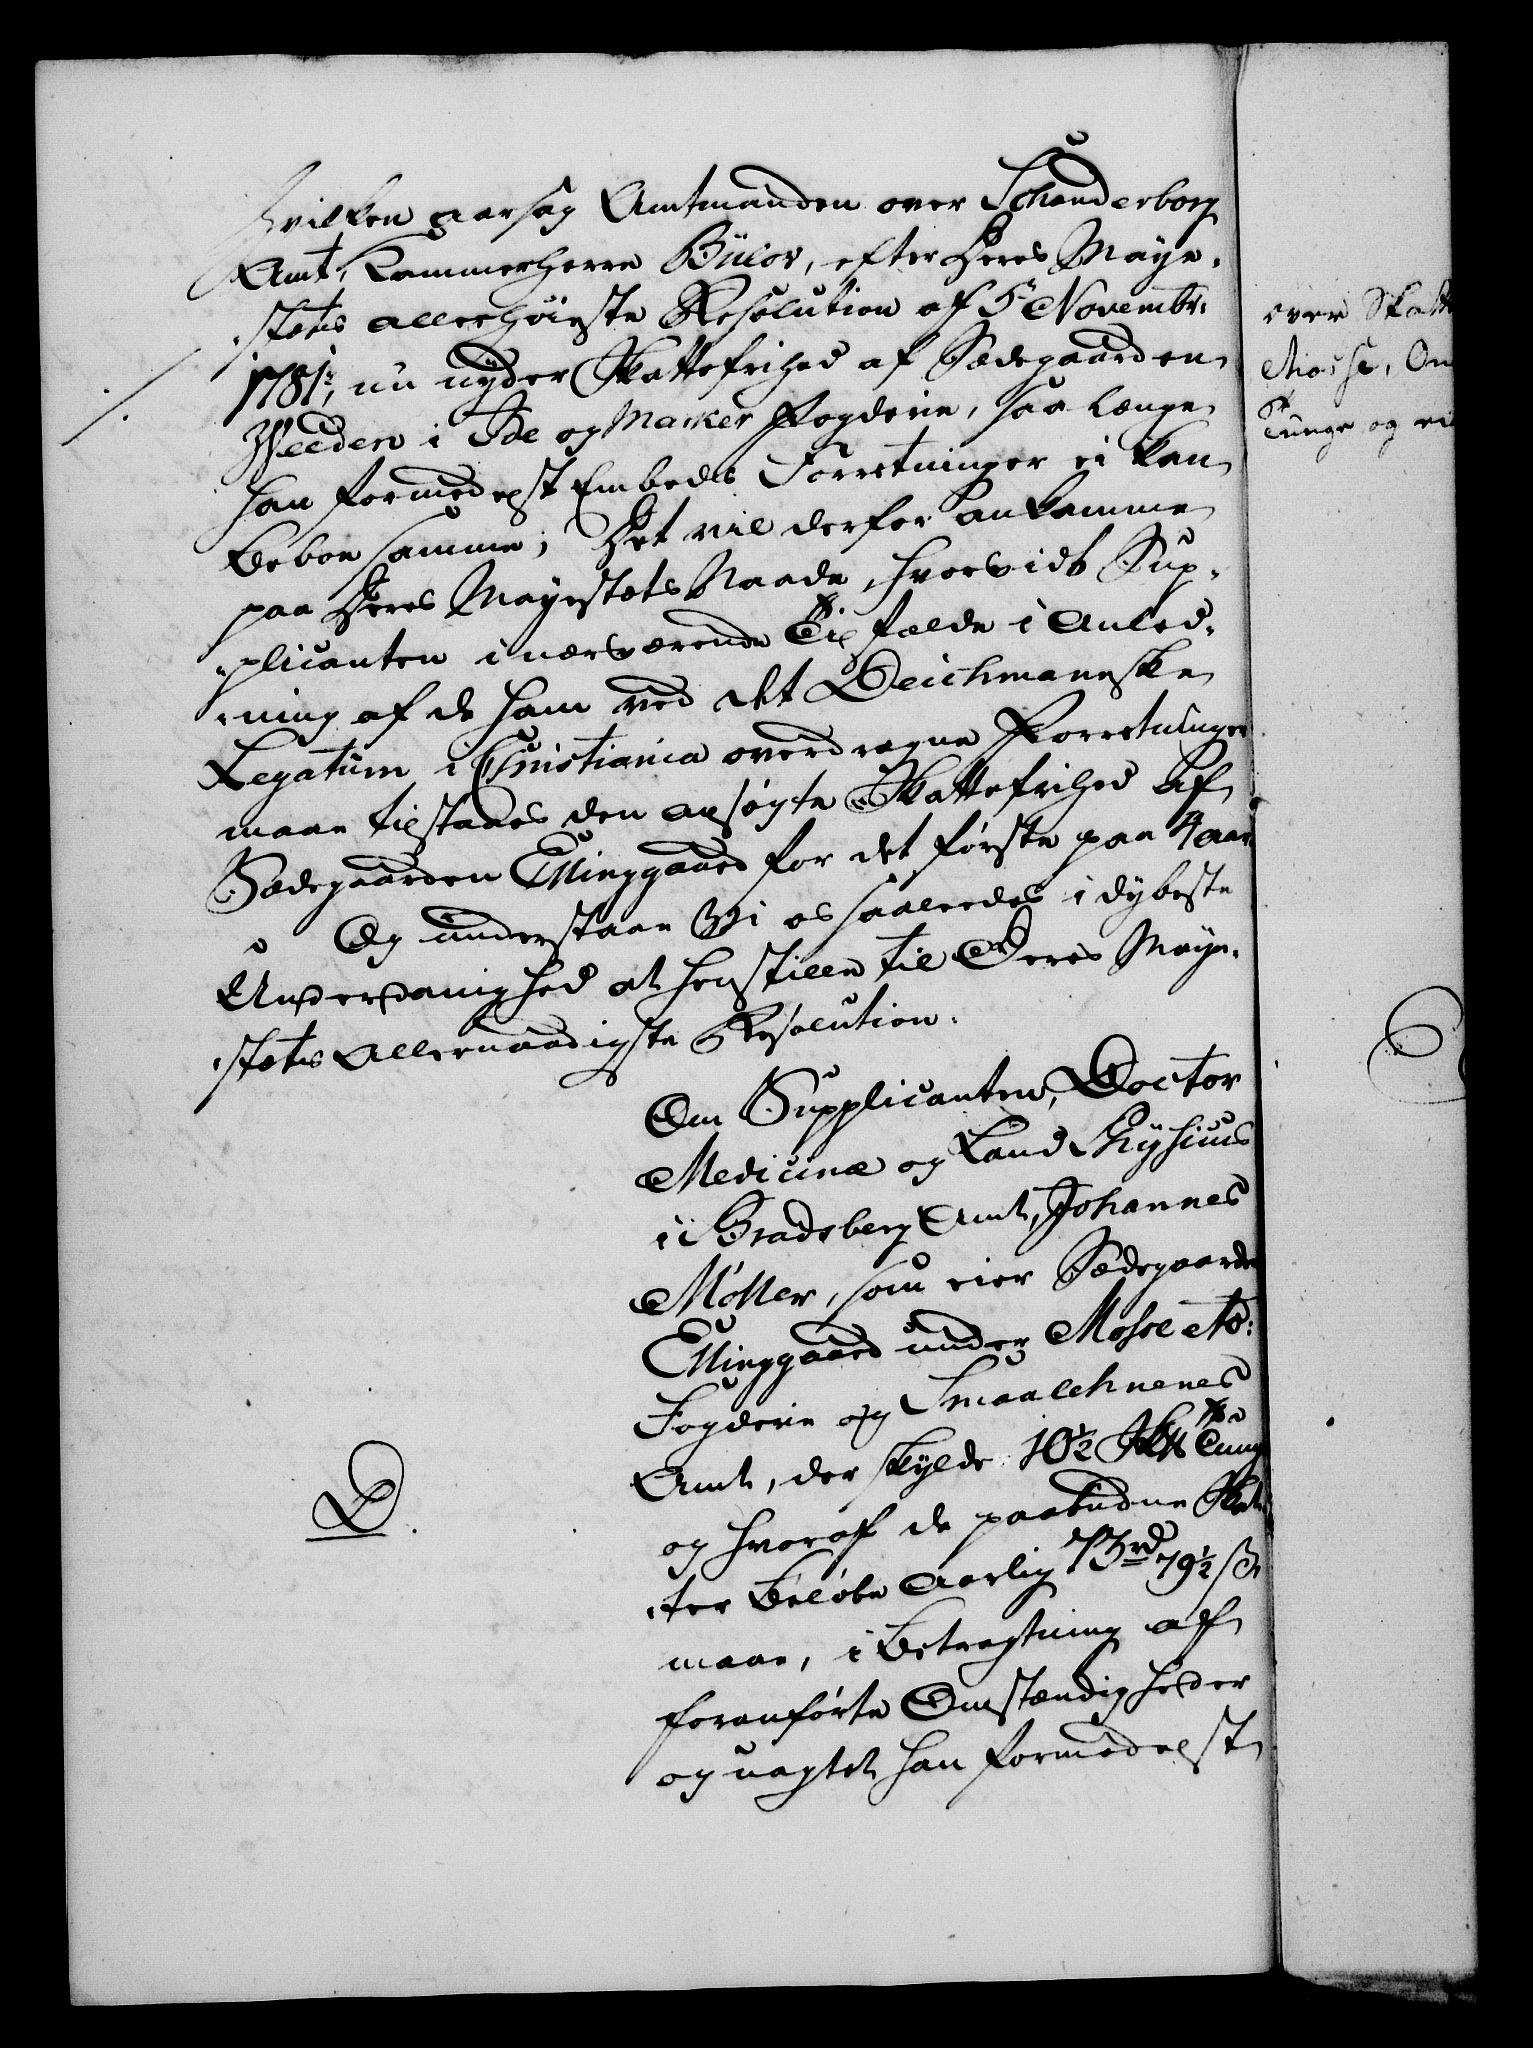 hvilken aarsag Amtmanden over Schanderborg
Amt, Kammerherre Bülov, efter Deres Maye-
stets allerhöieste Resolution af 5te Novembr:
1781, nu nyder Skattefrihed af Sædegaarden
Weeden i Ide og Marker Fogderie, saa længe
han formedelst Embeds Forretninger ei kan
beboe samme; Det vil derfor ankomme
paa Deres Mayestets Naade, hvorvidt Sup-
plicanten i nærværende Tilfælde i Anled-
ning af de ham ved det Deichmanske
Legatum i Christiania overdragne Forretninger
maae tilstaaes den ansøgte Skattefrihed af
Sædegaarden Ellinggaard for det første paa 4 Aar.
Og understaae Vi os saaledes i dybeste
Underdanighed at henstille til Deres Maye-
stets Allernaadigste Resolution.
Om Supplicanten, Doctor
Medicinæ og Land Physicus
i Bradsberg Amt, Johannes
Møller, som eier Sædegaarden
Ellinggaard under Mosse etc:
Fogderie og Smaalehnenes
Amt, der skylde 10½ Tunge
og hvoraf de paabudne Skat-
ter beløbe Aarlig 73 rd 79½ s
maae, i Betragtning af
foranførte Omstændigheder
og uagtet han formedelst
D.
over Skatt
Mosse, On
Tunge og ei